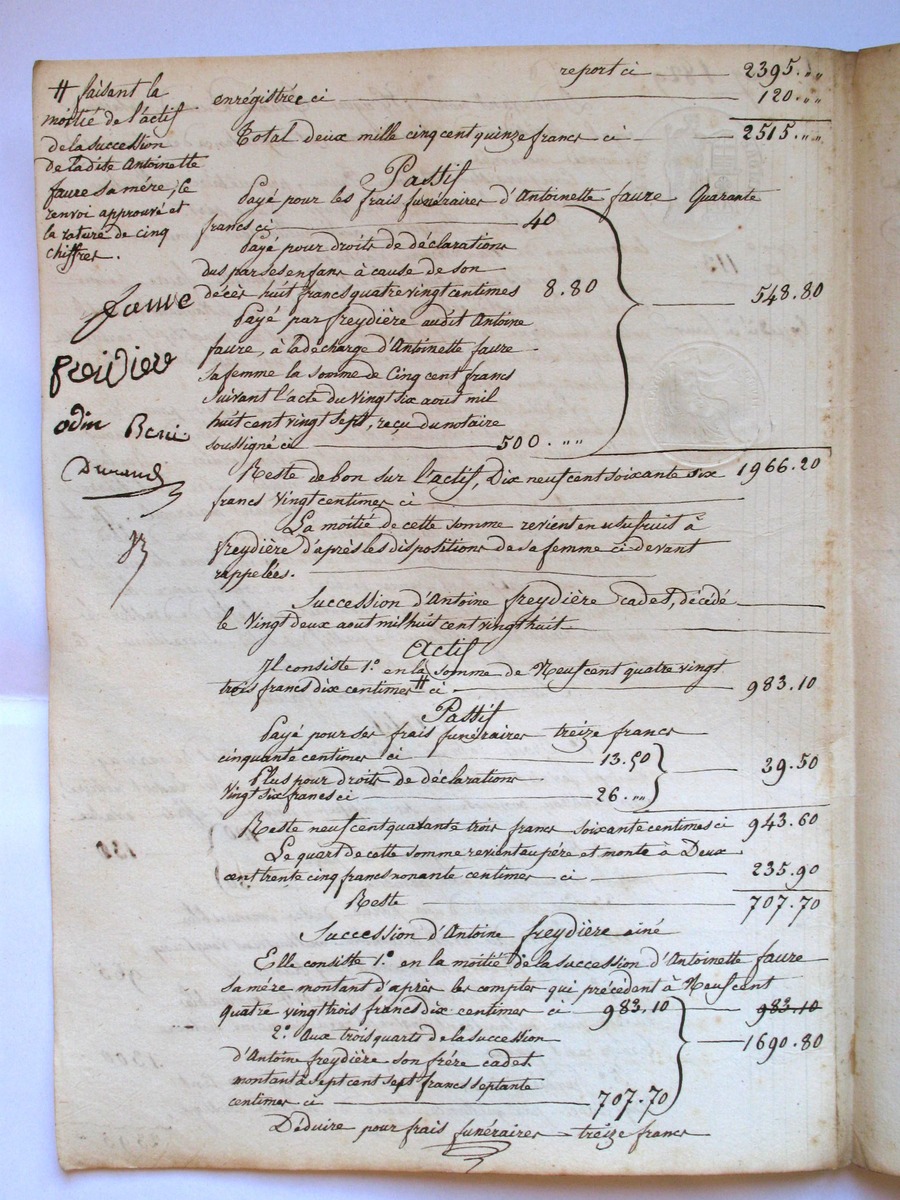 # faisant la
moitié de l'actif
de la succession
de ladite Antoinette
faure sa mére, le
renvoi approuvé et
la rature de cinq
chiffres.
faure
freidiere
odin
Durand
report ci 2395."
enrégistrée ci 120."
Total deux mille cinq cent quinze francs ci 2515."
Passif
Payé pour les frais funéraires d'Antoinette faure Quarante
francs ci 40
Payé pour droits de déclarations
dus par ses enfans à cause de son
décès huit francs quatre vingt centimes 8.80
548.80
Payé par freydière audit Antoine
faure, à la décharge d'Antoinette faure
sa femme la somme de Cinq cent francs
suivant l'acte du vingt six aout mil
huit cent vingt sept, reçu du notaire
soussigné ci 500."
Reste de bon sur l'actif, Dix neuf cent soixante six 1966.20
francs vingt centimes ci
La moitié de cette somme revient en usufruit à
freydière d'après les dispositions de sa femme ci-devant
rappelées.
Succession d'Antoine freydière cadet, décédé
le vingt deux aout mil huit cent vingt huit
Actif
Il consiste 1.° en la somme de Neuf cent quatre vingt
trois francs dix centimes # ci 983.10
Passif
Payé pour ses frais funéraires treize francs
cinquante centimes ci 13.50
39.50
Plus pour droits de déclarations
vingt six francs ci 26."
Reste neuf cent quarante trois francs soixante centimes ci 943.60
Le quart de cette somme revient au père et monte à Deux
cent trente cinq francs nonante centimes ci 235.90
Reste 707.70
Succession d'Antoine freydière ainé
Elle consiste 1.° en la moitié de la succession d'Antoinette faure
sa mére montant d'apres les comptes qui précédent à Neuf cent
quatre vingt trois francs dix centimes ci 983.10 983.10
2.° Aux trois quarts de la succession 1690.80
d'Antoine freydière son frére cadet
montant à sept cent sept francs septante
centimes ci 707.70
Déduire pour frais funéraires treize francs